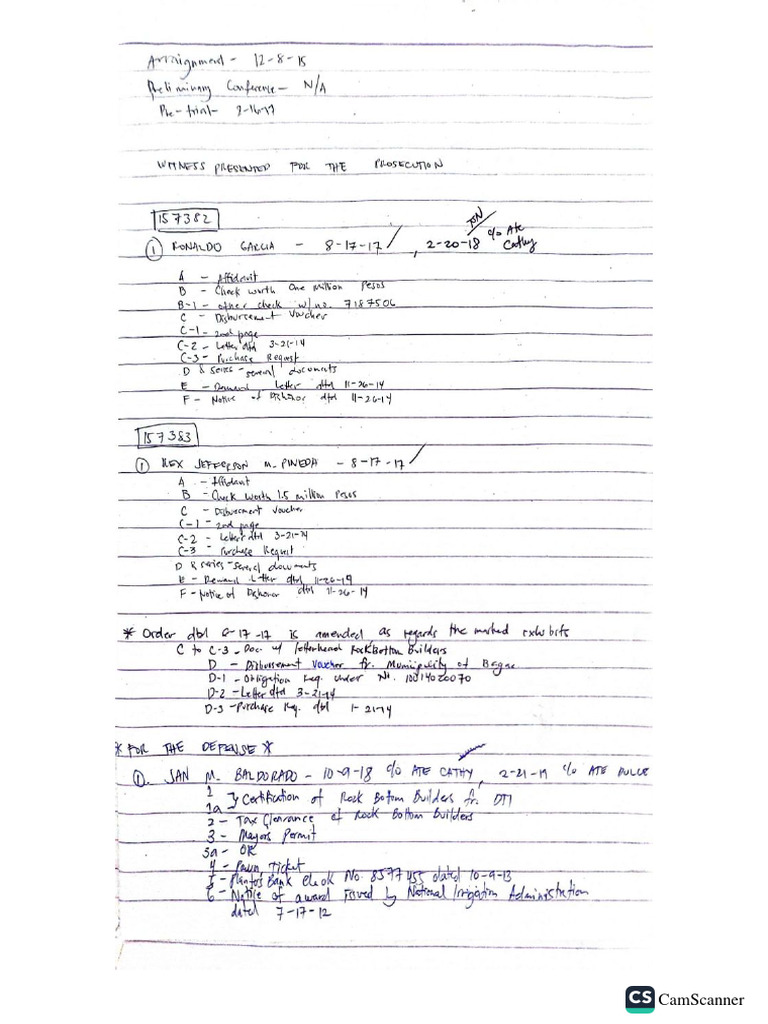 Arraignment - 12-8-15
Preliminary Conference - N/A
Pre-trial - 3-16-17
WITNESS PRESENTED FOR THE PROSECUTION
157382
TSN
① RONALDO GARCIA - 8-17-17 / , 2-20-18 c/o Ate Cathy
A - Affidavit
B - Check worth One Million Pesos
B-1 - other check w/ no. 7187506
C - Disbursement Voucher
C-1 - 2nd page
C-2 - Letter dtd 3-21-14
C-3 - Purchase Request
D & series - several documents
E - Demand Letter dtd 11-26-14
F - Notice of Dishonor dtd 11-26-14
157383
① REX JEFFERSON M. PINEDA - 8-17-17 /
A - Affidavit
B - Check Worth 1.5 million Pesos
C - Disbursement Voucher
C-1 - 2nd page
C-2 - Letter dtd 3-21-14
C-3 - Purchase Request
D & series - several documents
E - Demand Letter dtd 11-26-14
F - Notice of Dishonor dtd 11-26-14
* Order dtd 8-17-17 is amended as regards the marked exhibits
C to C-3 - Doc. w/ letterhead Rock Bottom Builders
D - Disbursement Voucher fr. Municipality of Bagac
D-1 - Obligation Req. under No. 10014020070
D-2 - Letter dtd 3-21-14
D-3 - Purchase Req. dtd 1-21-14
* FOR THE DEFENSE *
①. JAN M. BALDORADO - 10-9-18 c/o ATE CATHY, 2-21-19 c/o ATE DULCE
1
1a } Certification of Rock Bottom Builders fr. DTI
2 - Tax Clearance of Rock Bottom Builders
3 - Mayors Permit
3a - OR
4 - Pawn Ticket
5 - Planters Bank Check No. 8597455 dated 10-9-13
6 - Notice of award issued by National Irrigation Administration
dated 7-17-12
CS CamScanner